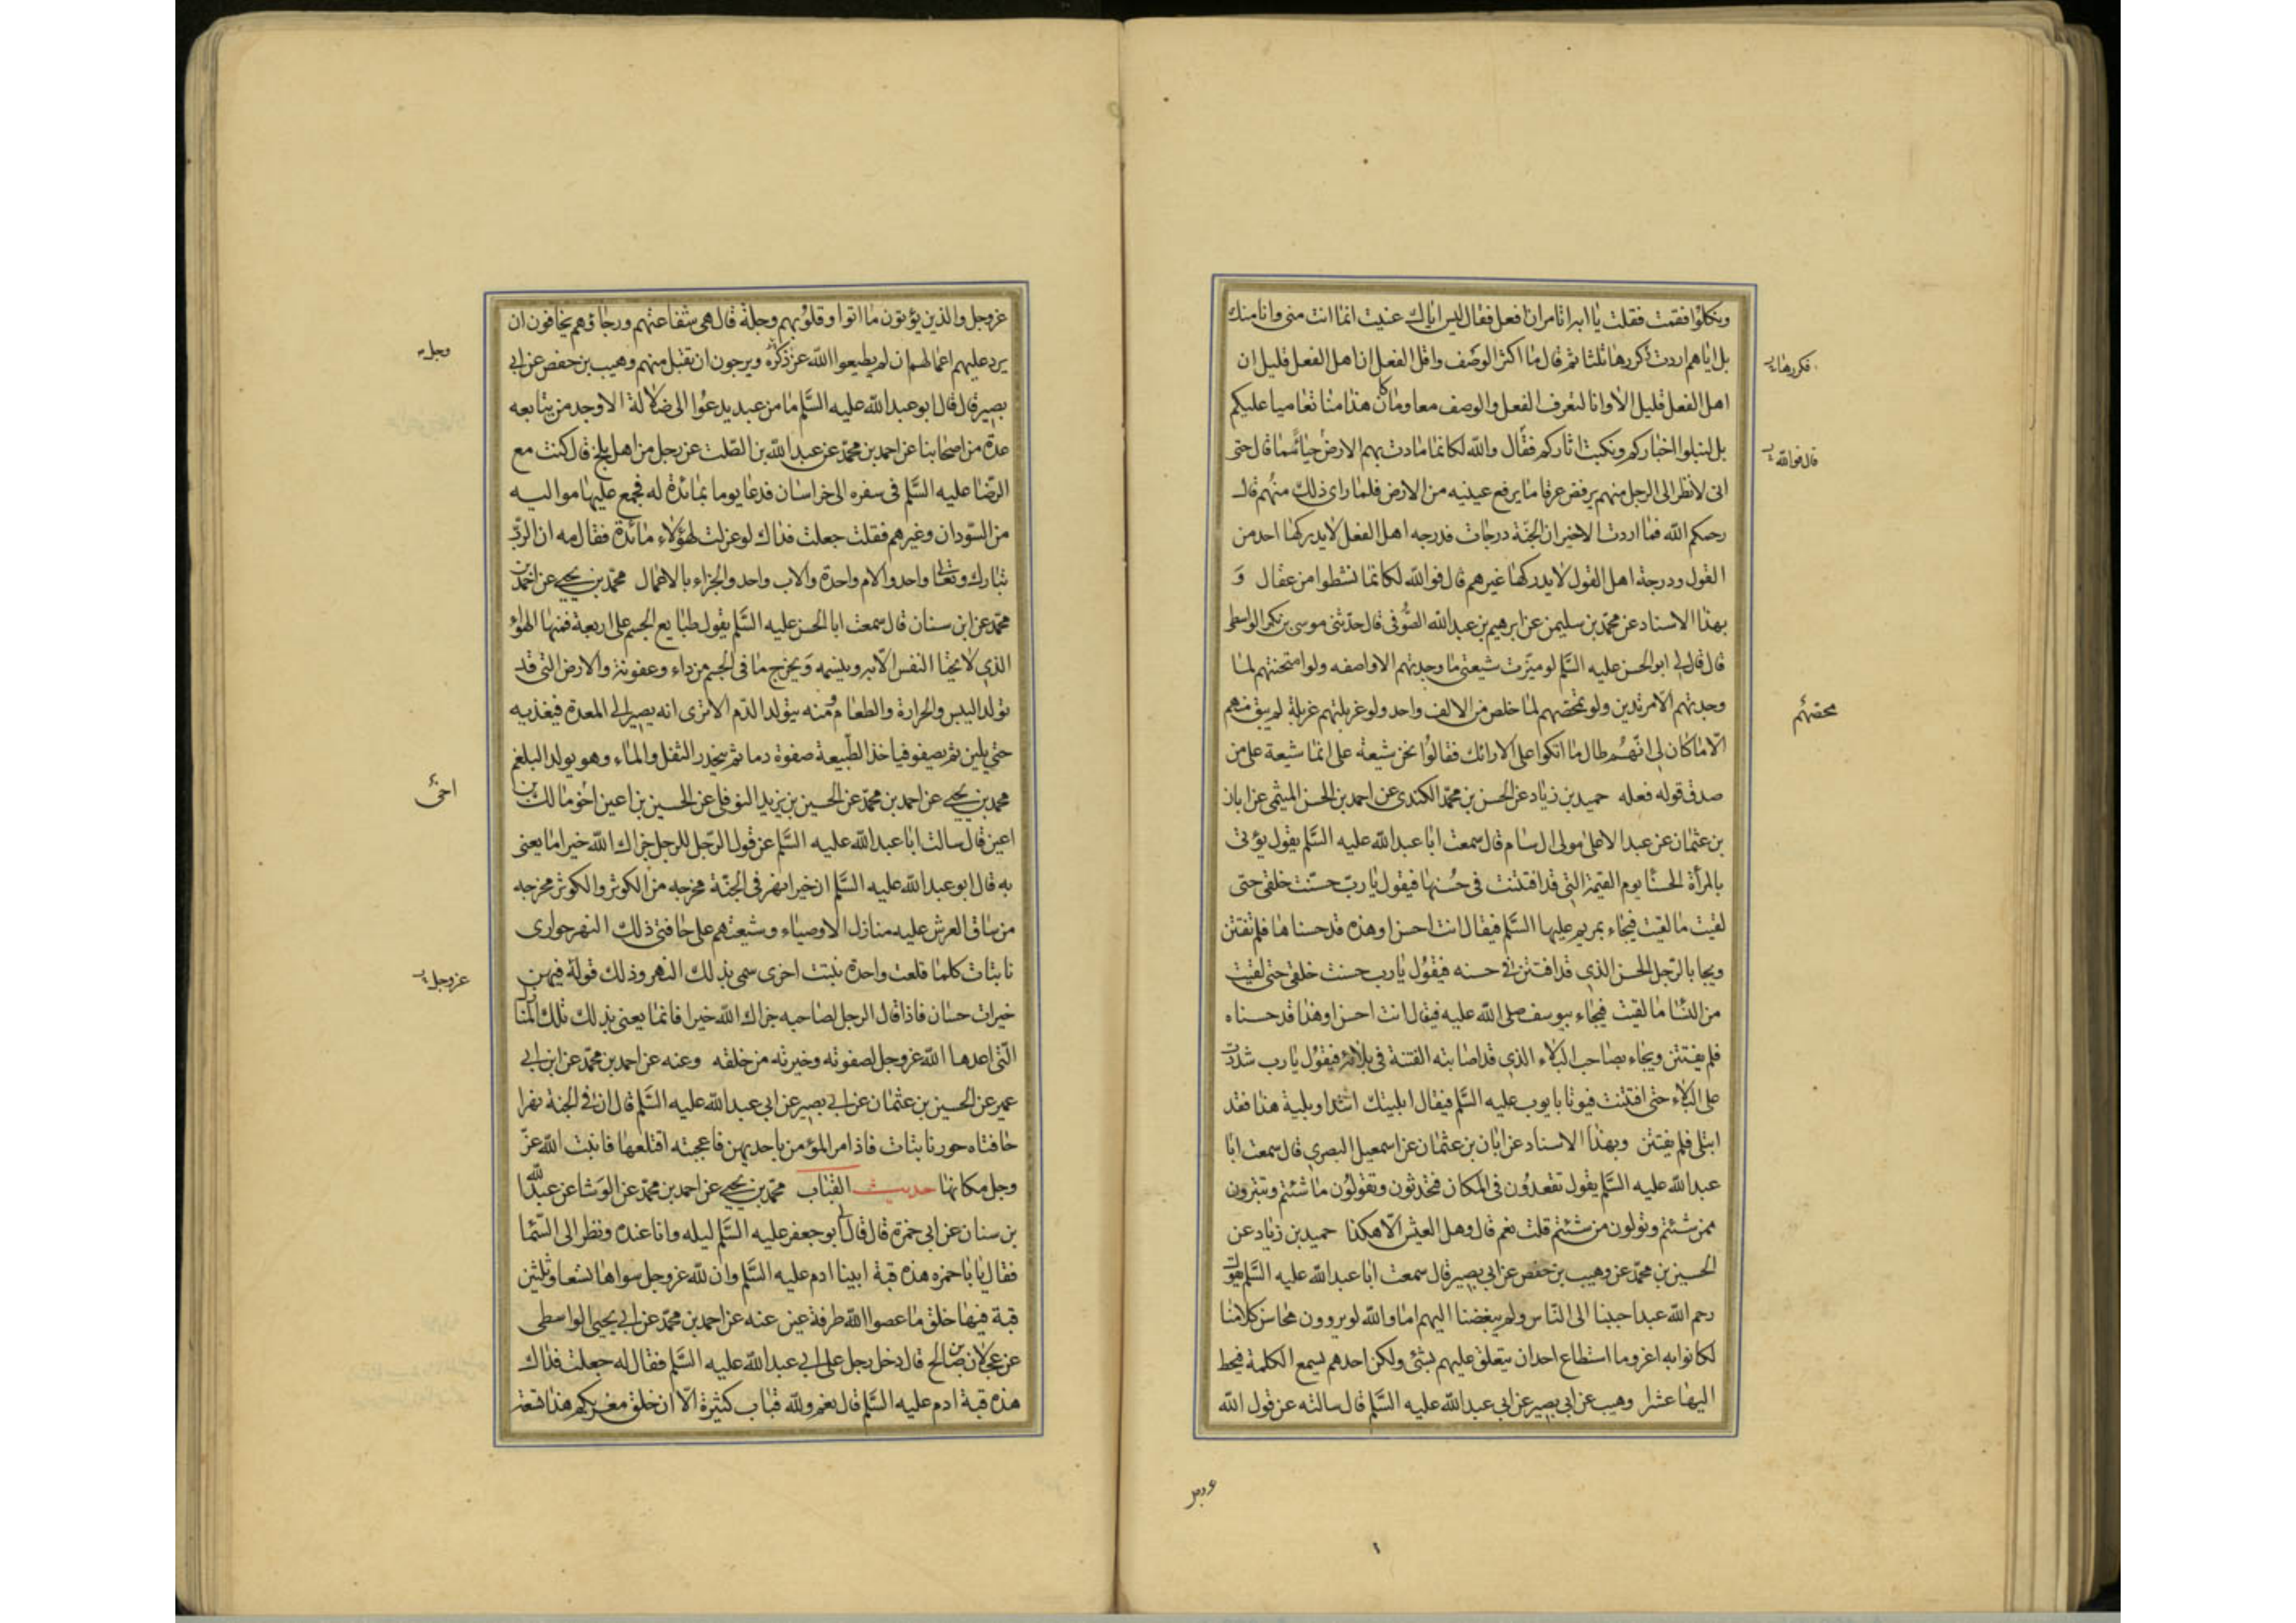 وتكلوا فقمت فقلت يا ابه انا من ان افعل فقال ليس اياك عنيت انما انت مني وانا منك
بل اياهم اردت فكررها ثلثا ثم قال ما اكثر الوصف واقل الفعل ان اهل الفعل قليل ان
فكررها
اهل الفعل قليل الا وانا لنعرف الفعل والوصف معا وما كان هذا منا تعاميا عليكم
بل لنبلوا اخباركم ونكتب اثاركم فقال والله لكانما مادت بهم الارض حياء مما قال حتى
قال فوالله
انى لانظر الى الرجل منهم يرفض عرقا ما يرفع عينيه من الارض فلما راى ذلك منهم قال
رحمكم الله فما اردت الا خيرا ان الجنة درجات فدرجه اهل الفعل لا يدركها احد من
القول ودرجة اهل القول لا يدركها غيرهم قال فوالله لكانما نشطوا من عقال و
بهذا الاسناد عن محمد بن سليمن عن ابرهيم بن عبد الله الصوفى قال حدثنى موسى بن بكر الواسطى
قال قال لى ابو الحسن عليه السلم لو ميزت شيعتى ما وجدتهم الا واصفه ولو امتحنتهم لما
وجدتهم الا مرتدين ولو تمحصهم لما خلص من الالف واحد ولو غربلتهم غربلة لم يبق منهم
الا ما كان لى انهم طال ما اتكوا على الارائك فقالوا نحن شيعة على انما شيعة على من
صدق قوله فعله حميد بن زياد عن الحسن بن محمد الكندى عن احمد بن الحسن الميثمى عن ابان
بن عثمان عن عبد الاعلى مولى ال سام قال سمعت ابا عبد الله عليه السلم يقول يؤتى
بالمرأة الحسنا يوم القيمة التى قد افتتنت فى حسنها فيقول يا رب حسنت خلقى حتى
لقيت ما لقيت فيجاء بمريم عليها السلم فيقال انت احسن او هذه قد حسناها فلم تفتتن
ويجا بالرجل الحسن الذي قد افتتن فى حسنه فيقول يا رب حسنت خلقى حتى لقيت
من النسا ما لقيت فيجاء بيوسف صلى الله عليه فيقال انت احسن او هذا قد حسناه
فلم يفتتن ويجاء بصاحب البلاء الذي قد اصابته الفتنة فى بلائه فيقول يا رب شددت
على البلاء حتى افتتنت فيوتا بايوب عليه السلم فيقال ابليتك اشد او بلية هذا فقد
ابتلى فلم يفتتن وبهذا الاسناد عن ابان بن عثمان عن اسمعيل البصرى قال سمعت ابا
عبد الله عليه السلم يقول تقعدون فى المكان فتحدثون وتقولون ما شئتم وتتبرون
ممن شئتم وتولون من شئتم قلت نعم قال وهل العيش الا هكذا حميد بن زياد عن
الحسين بن محمد عن وهيب بن حفص عن ابى بصير قال سمعت ابا عبد الله عليه السلم يقول
رحم الله عبدا حببنا الى الناس ولم يبغضنا اليهم اما والله لو يروون محاسن كلامنا
لكانوا به اعز وما استطاع احد ان يتعلق عليهم بشئ ولكن احدهم يسمع الكلمة فيحط
اليها عشرا وهيب عن ابى بصير عن ابى عبد الله عليه السلم قال سالته عن قول الله
عز وجل والذين يؤتون ما اتوا وقلوبهم وجلة قال هى شفاعتهم ورجاؤهم يخافون ان
يرد عليهم اعمالهم ان لم يطيعوا الله عز ذكره ويرجون ان تقبل منهم وهيب بن حفص عن ابى
بصير قال قال ابو عبد الله عليه السلم ما من عبد يدعوا الى ضلالة الا وجد من يتابعه
عدة من اصحابنا عن احمد بن محمد عن عبد الله بن الصلت عن رجل من اهل بلخ قال كنت مع
الرضا عليه السلم فى سفره الى خراسان فدعا يوما بمائدة له فجمع عليها مواليه
من السودان وغيرهم فقلت جعلت فداك لو عزلت لهؤلاء مائدة فقال مه ان الرب
تبارك وتعالى واحد والام واحدة والاب واحد والجزاء بالاعمال محمد بن يحيى عن احمد بن
محمد عن ابن سنان قال سمعت ابا الحسن عليه السلم يقول طبايع الجسم على اربعة فمنها الهواء
الذي لا تحيا النفس الا به وبنسيمه ويخرج ما فى الجسم من داء وعفونة والارض التى قد
تولد اليبس والحرارة والطعام ومنه يتولد الدم الا ترى انه يصير الى المعدة فيغذيه
حتى يلين ثم يصفو فياخذ الطبيعة صفوة دما ثم ينحدر الثفل والماء وهو يولد البلغم
محمد بن يحيى عن احمد بن محمد عن الحسين بن يزيد النوفلى عن الحسين بن اعين اخو مالك بن
اعين قال سالت ابا عبد الله عليه السلم عن قول الرجل للرجل جزاك الله خيرا ما يعنى
به قال ابو عبد الله عليه السلم ان خيرا نهر فى الجنة مخرجه من الكوثر والكوثر مخرجه
من ساق العرش عليه منازل الاوصياء وشيعتهم على حافتى ذلك النهر جوارى
نابتات كلما قلعت واحدة نبتت اخرى سمى بذلك النهر وذلك قوله فيهن
عز وجل
خيرات حسان فاذا قال الرجل لصاحبه جزاك الله خيرا فانما يعنى بذلك تلك المنازل
التى اعدها الله عز وجل لصفوته وخيرته من خلقه وعنه عن احمد بن محمد عن ابن ابى
عمير عن الحسين بن عثمان عن ابى بصير عن ابى عبد الله عليه السلم قال ان فى الجنة نهرا
حافتاه حور نابتات فاذا مر المؤمن باحديهن فاعجبته اقتلعها فانبت الله عز
وجل مكانها حديث القباب محمد بن يحيى عن احمد بن محمد عن الوشا عن عبد الله
بن سنان عن ابى حمزة قال قال لى ابو جعفر عليه السلم ليله وانا عنده ونظر الى السما
فقال يا با حمزه هذه قبة ابينا ادم عليه السلم وان لله عز وجل سواها تسعا وثلثين
قبة فيها خلق ما عصوا الله طرفة عين عنه عن احمد بن محمد عن ابى يحيى الواسطى
عن عجلان بن صالح قال دخل رجل على ابى عبد الله عليه السلم فقال له جعلت فداك
هذه قبة ادم عليه السلم قال نعم ولله قباب كثيرة الا ان خلق مغربكم هذا تسعة